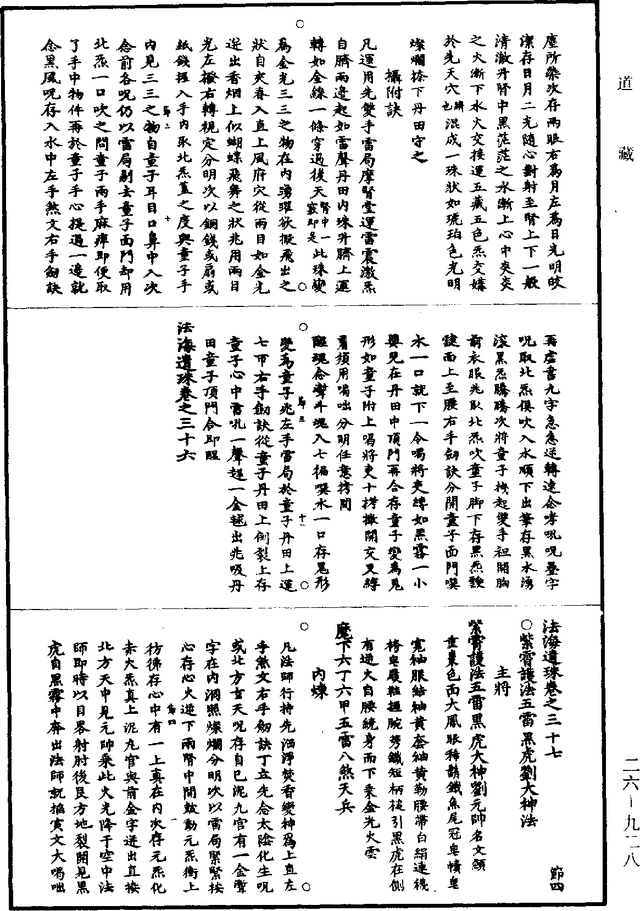 道藏
塵所染次存兩眼右為月左為日光明皎
潔存日月二光隨心對射至腎上下一般
清澈升腎中黑茫茫之水漸上心中炎炎
之火漸下水火交接運五藏五色炁交媾
於先天穴臍也混成一珠狀如琥珀色光明
燦爛捺下丹田守之
攝附訣
凡運用先雙手雷局摩腎堂運雷震激炁
自臍兩邊起如雷聲丹田內珠升臍上運
轉如金線一條穿過後天腎中一竅即是此珠變
為金光三三之物在內湧躍欲擬飛出之
狀自夾脊入直上風府穴從兩目如金光
迸出香烟上似蝴蝶飛舞之狀兆用兩目
光左撥右轉視定分明次以銅錢或扇或
紙錢握入手內取北炁蓋之度與童子手
內見三三之物自童子耳目口鼻中入次
念前各呪仍以雷局剔去童子面門却用
北炁一口吹之問童子兩手麻痺即便取
了手中物件再於童子手心提過一邊就
念黑風呪存入水中左手煞文右手劍訣
再虛書九字急急逆轉速念哮吼呪疊字
呪取北炁俱吹入水順下出筆存黑水湧
滾黑炁騰騰次將童子起雙手袒開胸
前衣服兆取北炁吹童子脚下存黑炁
遶面上至腰右手劍訣分開童子面門噀
水一口就下一令喝將吏縛如黑霧一小
嬰兒在丹田中頂門再合存童子變為鬼
形如童子附上唱將吏十拷撒開交叉縛
著須用喝咄分明任意拷問
醒魂念聲斗魂入七徧噀水一口存鬼形
變為童子兆左手雷局於童子丹田上運
七帀右手劍訣從童子丹田上倒裂上存
童子心中雷吼一聲趕一金毬出兆吸丹
田童子頂門合即醒
法海遺珠卷之三十六
法海遺珠卷之三十七 節四
○紫霄護法五雷黑虎劉大神法
主將
紫霄護法五雷黑虎大神劉元帥名文顯
重棗色面大鳳眼稀鬚鐵魚尾冠皂幘皂
寬袖服結袖黃套袖黃勒腰帶白絹連機
袴皂履靴搵腕劵鐵短柄槌引黑虎在側
有逆火自腰繞身而下乘金光火雲
麾下六丁六甲五雷八煞天兵
內煉
凡法師行持先洒淨焚香變神為上直左
手煞文右手劍訣丁立先念太陰化生呪
或北方玄天呪存自己泥九宮有一金霐
字在內洞照燦爛分明次以雷局緊緊按
心存心火逆下兩腎中間鼓動元炁衝上
彷彿存心中有一上真在內次存元炁化
赤火炁真上泥九宮與前金字迸出直接
北方天中見元帥乘此火光降于空中法
師即時以目畧射肘後艮方地裂開見黑
虎自黑霧中奔出法師就掐寅文大喝咄
二六－九二八